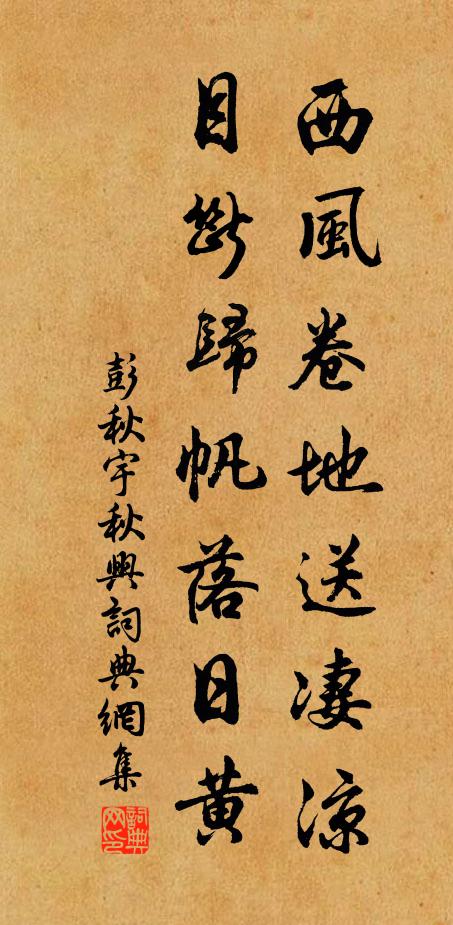 西風卷地送淒涼
目斷歸帆落日黄
彭秋宇秋興詞典網集
詞典网印